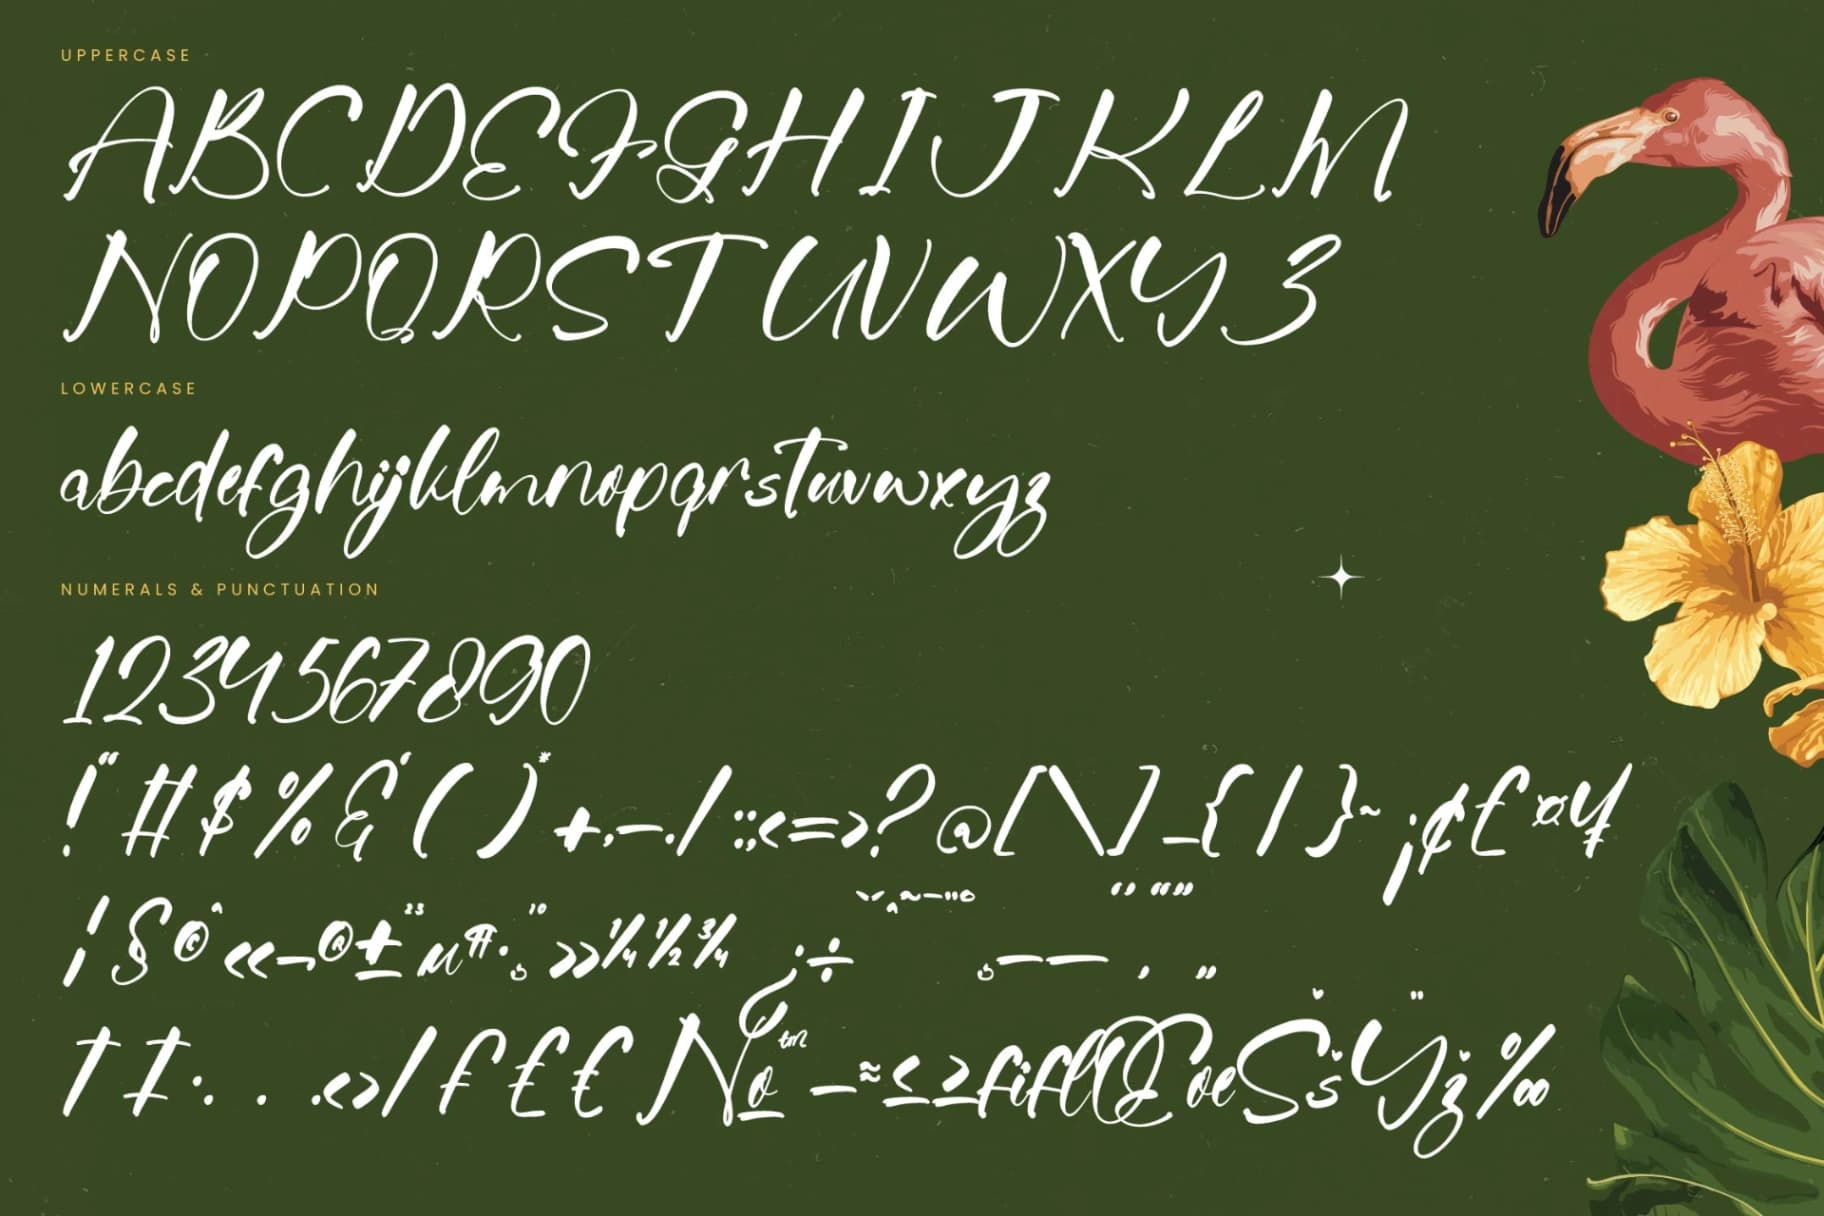 UPPERCASE
ABCDEFGHIJKLM
NOPQRSTUVWXYZ
LOWERCASE
abcdefghijklmnopqrstuvwxyz
NUMERALS & PUNCTUATION
1234567890
!"#$%&'()*+,-./:;<=>?@[\]_{|}~¡¢£¤¥
¦§©«¬®±²³µ¶·¸¹º»¼½¾¿÷ ˇ^~¯˝˚ ¸–— ‘’“” ‚ „
†‡•. …‹›/₣£€№™−≈≤≥fiflŒœŠšŸž‰